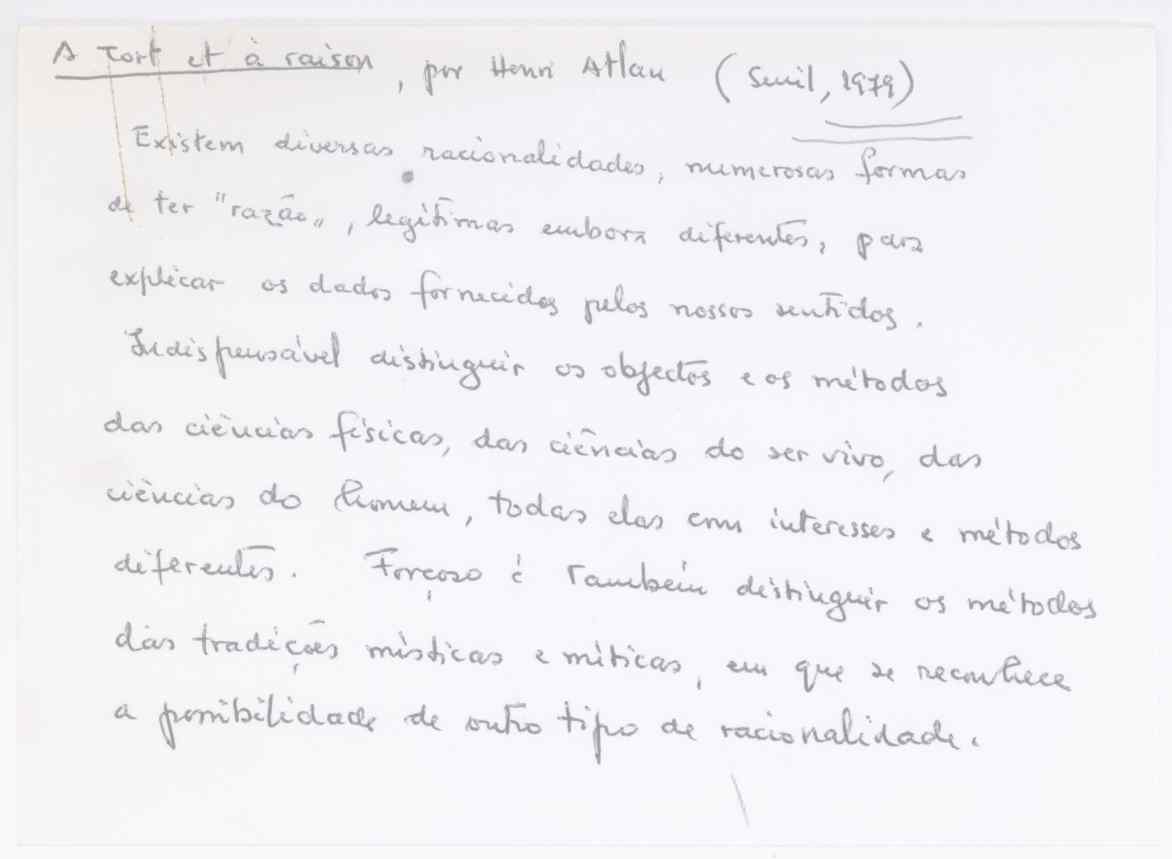 A tort et à raison, por Henri Atlan (Seuil, 1979)
Existem diversas racionalidades, numerosas formas
de ter "razão", legítimas embora diferentes, para
explicar os dados fornecidos pelos nossos sentidos.
Indispensável distinguir os objectos e os métodos
das ciências físicas, das ciências do ser vivo, das
ciências do homem, todas elas com interesses e métodos
diferentes. Forçoso é também distinguir os métodos
das tradições místicas e míticas, em que se reconhece
a possibilidade de outro tipo de racionalidade.